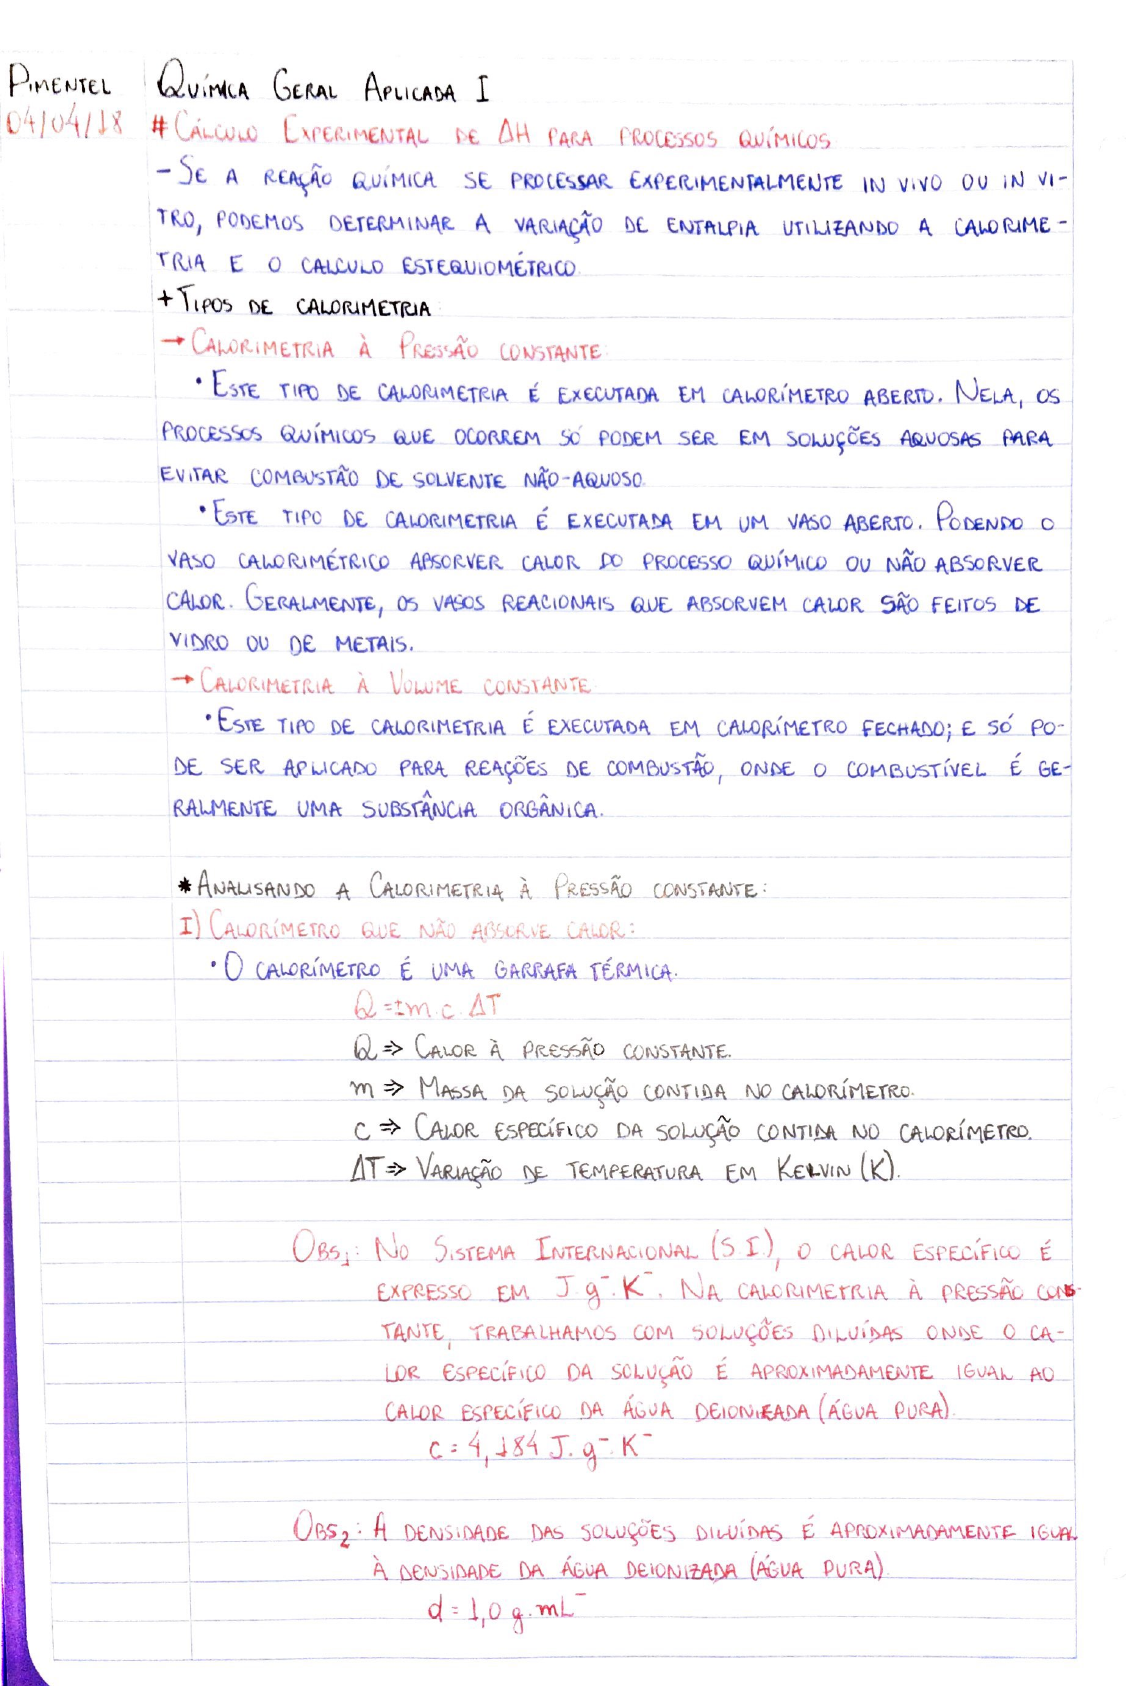 PIMENTEL QUÍMICA GERAL APLICADA I
04/04/18 # CÁLCULO EXPERIMENTAL DE ΔH PARA PROCESSOS QUÍMICOS
- SE A REAÇÃO QUÍMICA SE PROCESSAR EXPERIMENTALMENTE IN VIVO OU IN VI-
TRO, PODEMOS DETERMINAR A VARIAÇÃO DE ENTALPIA UTILIZANDO A CALORIME-
TRIA E O CALCULO ESTEQUIOMÉTRICO.
+ TIPOS DE CALORIMETRIA:
→ CALORIMETRIA À PRESSÃO CONSTANTE:
• ESTE TIPO DE CALORIMETRIA É EXECUTADA EM CALORÍMETRO ABERTO. NELA, OS
PROCESSOS QUÍMICOS QUE OCORREM SÓ PODEM SER EM SOLUÇÕES AQUOSAS PARA
EVITAR COMBUSTÃO DE SOLVENTE NÃO-AQUOSO.
• ESTE TIPO DE CALORIMETRIA É EXECUTADA EM UM VASO ABERTO. PODENDO O
VASO CALORIMÉTRICO ABSORVER CALOR DO PROCESSO QUÍMICO OU NÃO ABSORVER
CALOR. GERALMENTE, OS VASOS REACIONAIS QUE ABSORVEM CALOR SÃO FEITOS DE
VIDRO OU DE METAIS.
→ CALORIMETRIA À VOLUME CONSTANTE:
• ESTE TIPO DE CALORIMETRIA É EXECUTADA EM CALORÍMETRO FECHADO; E SÓ PO-
DE SER APLICADO PARA REAÇÕES DE COMBUSTÃO, ONDE O COMBUSTÍVEL É GE-
RALMENTE UMA SUBSTÂNCIA ORGÂNICA.
* ANALISANDO A CALORIMETRIA À PRESSÃO CONSTANTE:
I) CALORÍMETRO QUE NÃO ABSORVE CALOR:
• O CALORÍMETRO É UMA GARRAFA TÉRMICA.
Q = ±m.c.ΔT
Q ⇒ CALOR À PRESSÃO CONSTANTE.
m ⇒ MASSA DA SOLUÇÃO CONTIDA NO CALORÍMETRO.
c ⇒ CALOR ESPECÍFICO DA SOLUÇÃO CONTIDA NO CALORÍMETRO.
ΔT ⇒ VARIAÇÃO DE TEMPERATURA EM KELVIN (K).
OBS₁: NO SISTEMA INTERNACIONAL (S.I.), O CALOR ESPECÍFICO É
EXPRESSO EM J.g⁻.K⁻. NA CALORIMETRIA À PRESSÃO CONS-
TANTE, TRABALHAMOS COM SOLUÇÕES DILUÍDAS ONDE O CA-
LOR ESPECÍFICO DA SOLUÇÃO É APROXIMADAMENTE IGUAL AO
CALOR ESPECÍFICO DA ÁGUA DEIONIZADA (ÁGUA PURA).
c = 4,184 J.g⁻.K⁻
OBS₂: A DENSIDADE DAS SOLUÇÕES DILUÍDAS É APROXIMADAMENTE IGUAL
À DENSIDADE DA ÁGUA DEIONIZADA (ÁGUA PURA).
d = 1,0 g.mL⁻